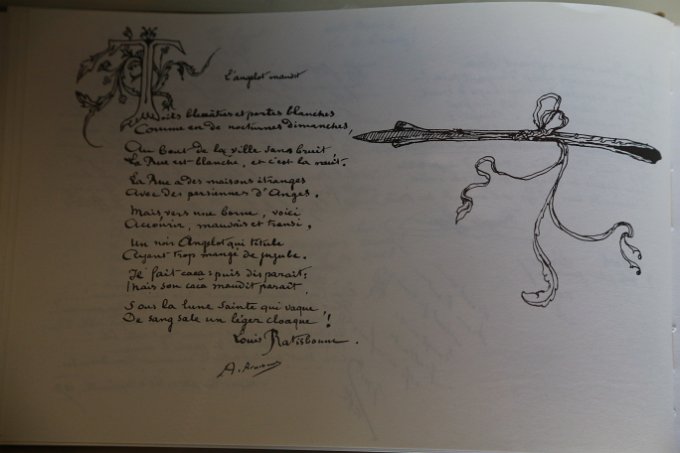 L'angelot maudit
Toits bleuâtres et portes blanches
Comme en de nocturnes dimanches,
Au bout de la ville sans bruit
La Rue est blanche, et c'est la nuit.
La Rue a des maisons étranges
Avec des persiennes d'Anges.
Mais, vers une borne, voici
Accourir, mauvais et transi,
Un noir Angelot qui titube,
Ayant trop mangé de jujube.
Il fait caca : puis disparait :
Mais son caca maudit parait,
Sous la lune sainte qui vaque,
De sang sale un léger cloaque !
Louis Ratisbonne.
A. Rimbaud